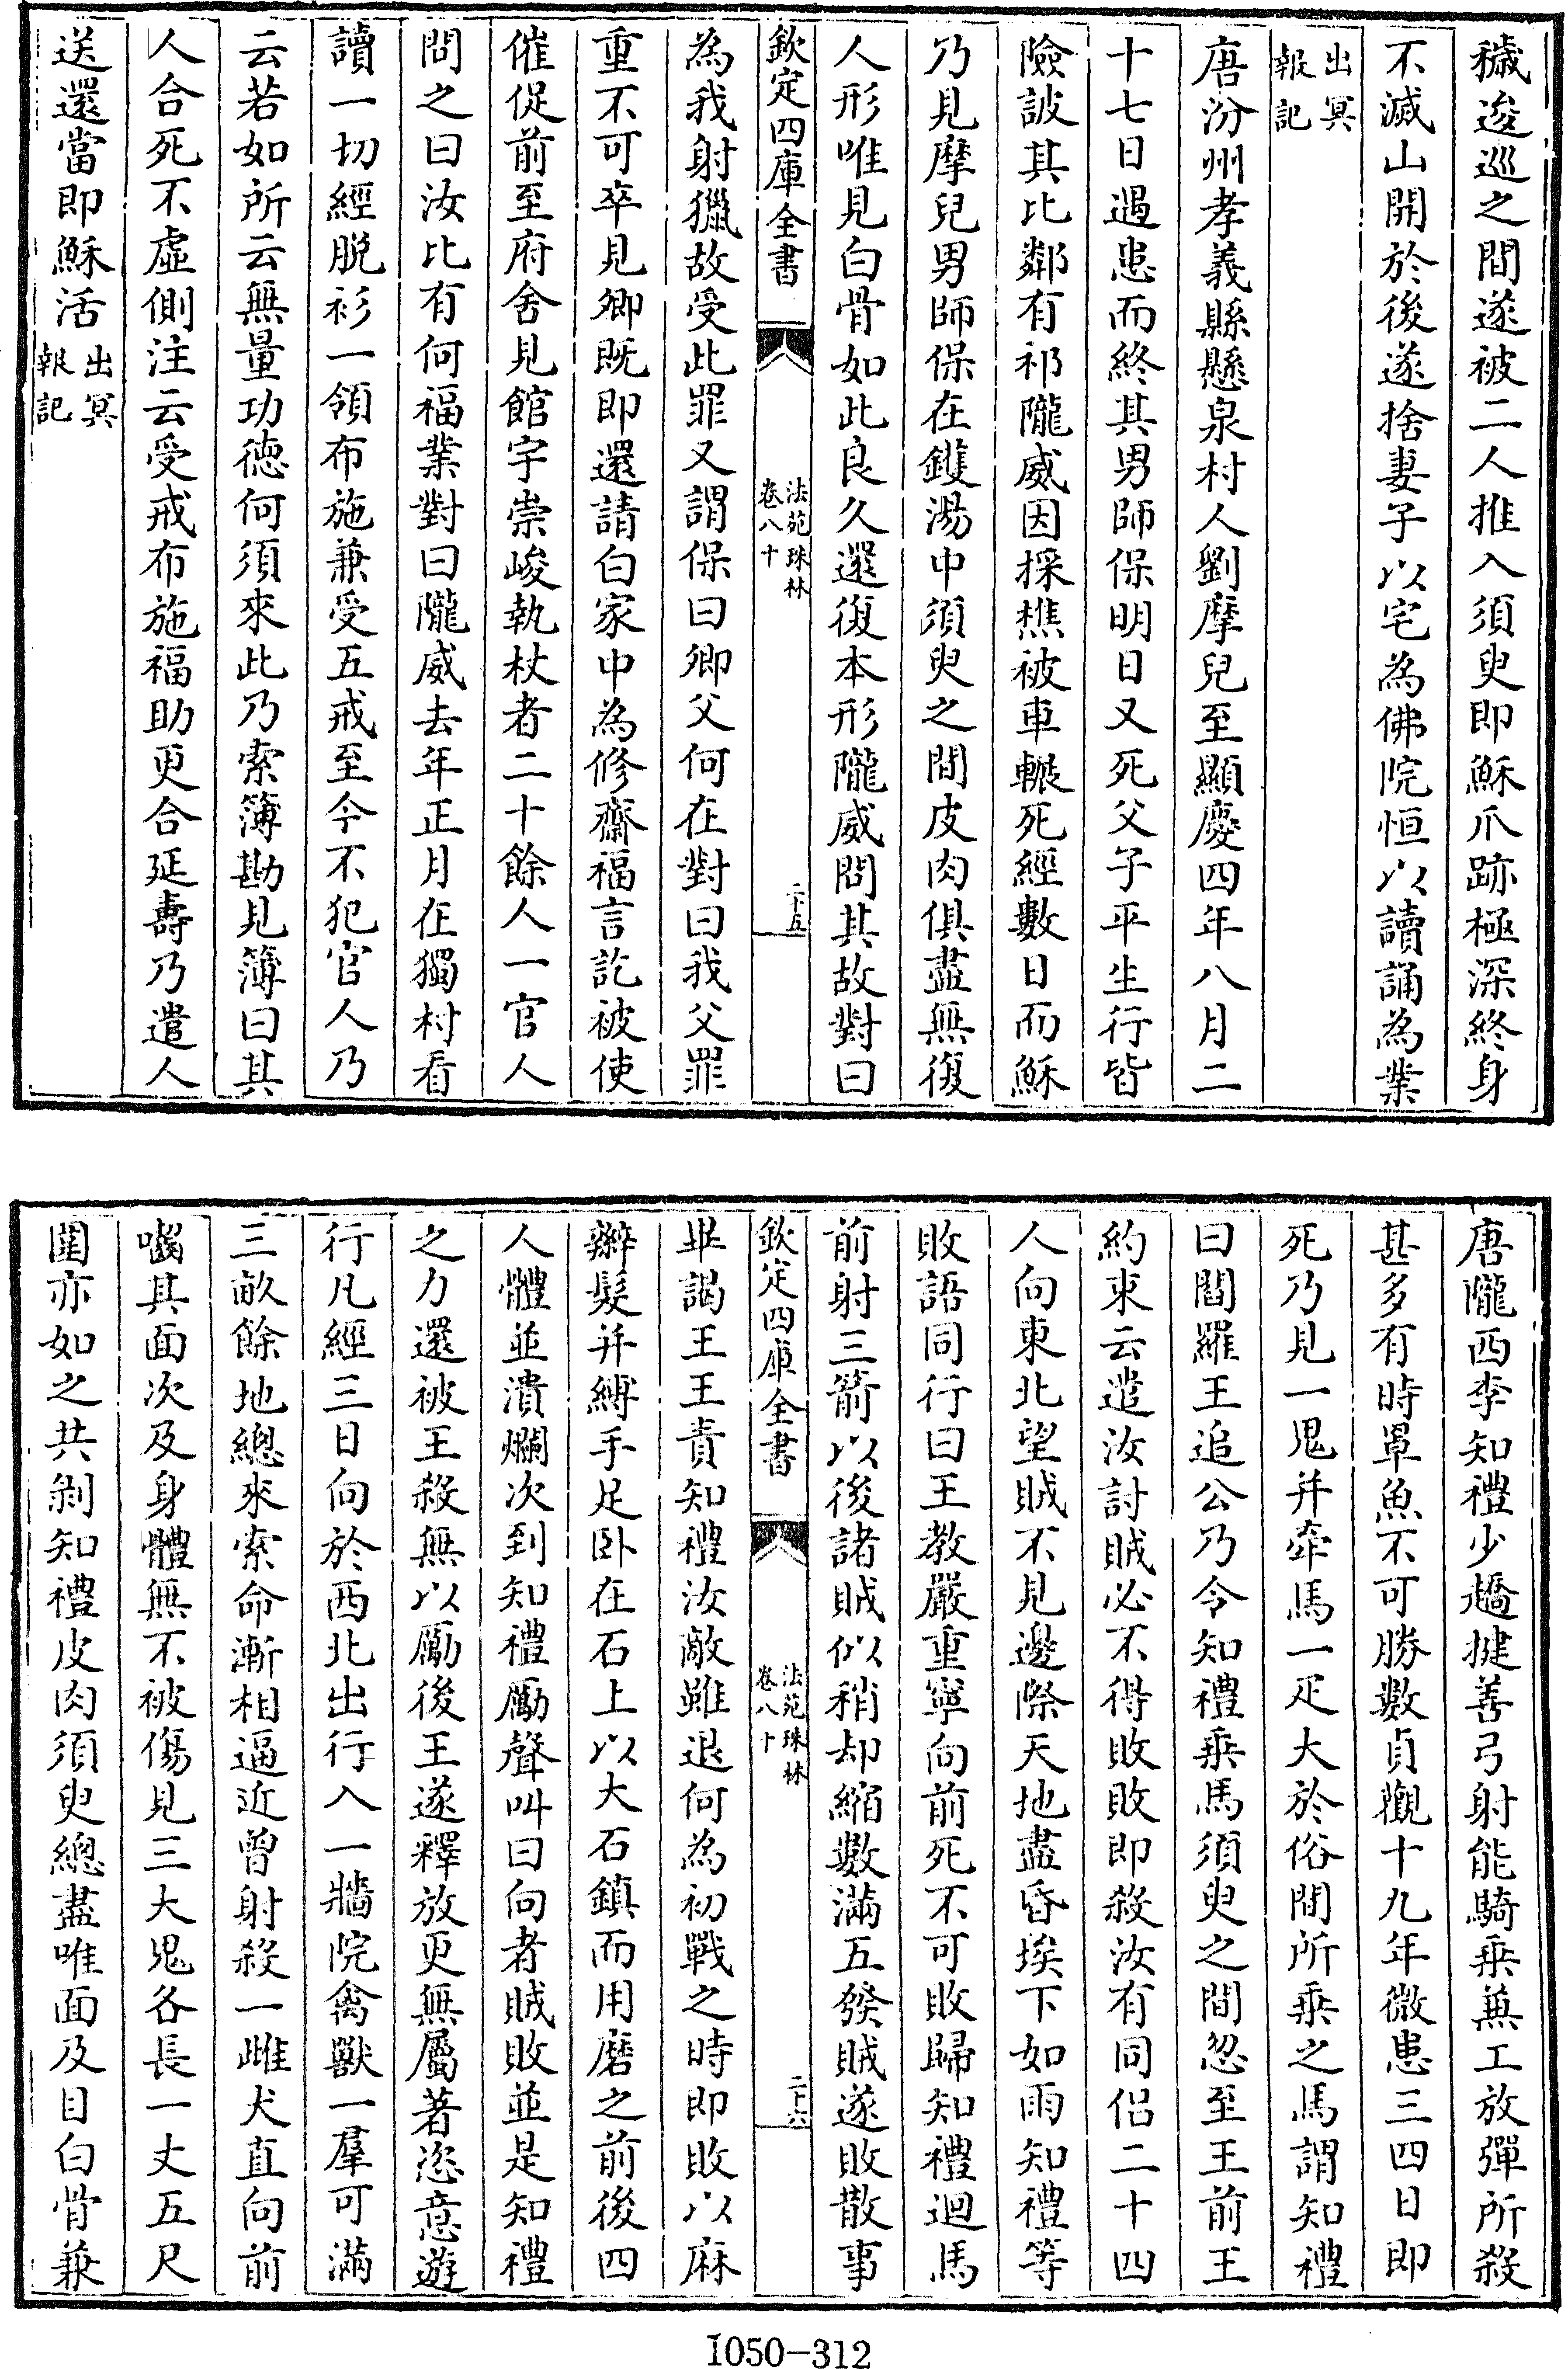 穢逡巡之間遂被二人推入須臾即穌爪跡極深終身
不滅山開於後遂捨妻子以宅為佛院恒以讀誦為業
出冥
報記
唐汾州孝義縣懸泉村人劉摩兒至顯慶四年八月二
十七日遇患而終其男師保明日又死父子平生行皆
險詖其比鄰有祁隴威因採樵被車輾死經數日而穌
乃見摩兒男師保在鑊湯中須臾之間皮肉俱盡無復
人形唯見白骨如此良久還復本形隴威問其故對曰
欽定四庫全書
法苑珠林
卷八十
二十五
為我射獵故受此罪又謂保曰卿父何在對曰我父罪
重不可卒見卿既即還請白家中為修齋福言訖被使
催促前至府舍見館宇崇峻執杖者二十餘人一官人
問之曰汝比有何福業對曰隴威去年正月在獨村看
讀一切經脫衫一領布施兼受五戒至今不犯官人乃
云若如所云無量功德何須來此乃索簿勘見簿曰其
人合死不虛側注云受戒布施福助更合延壽乃遣人
送還當即穌活
出冥
報記
唐隴西李知禮少趫捷善弓射能騎乗兼工放彈所殺
甚多有時罩魚不可勝數貞觀十九年微患三四日即
死乃見一鬼并牽馬一疋大於俗間所乗之馬謂知禮
曰閻羅王追公乃令知禮乗馬須臾之間忽至王前王
約束云遣汝討賊必不得敗敗即殺汝有同侣二十四
人向東北望賊不見邊際天地盡昏埃下如雨知禮等
敗語同行曰王教嚴重寧向前死不可敗歸知禮迴馬
前射三箭以後諸賊似稍却縮數滿五發賊遂敗散事
欽定四庫全書
法苑珠林
卷八十
二十六
畢謁王王責知禮汝敵雖退何為初戰之時即敗以麻
辮髮并縛手足卧在石上以大石鎮而用磨之前後四
人體並潰爛次到知禮厲聲叫曰向者賊敗並是知禮
之力還被王殺無以勵後王遂釋放更無屬著恣意遊
行凡經三日向於西北出行入一牆院禽獸一羣可滿
三畝餘地總來索命漸相逼近曾射殺一雌犬直向前
囓其面次及身體無不被傷見三大鬼各長一丈五尺
圍亦如之共剝知禮皮肉須臾總盡唯面及目白骨兼
1050-312